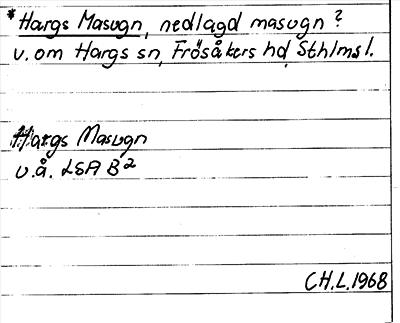 *Hargs Masugn, nedlagd masugn?
v. om Hargs sn, Frösåkers hd, Sthlms l.
Hargs Masugn
u.å. LSA B2
CH.L.1968